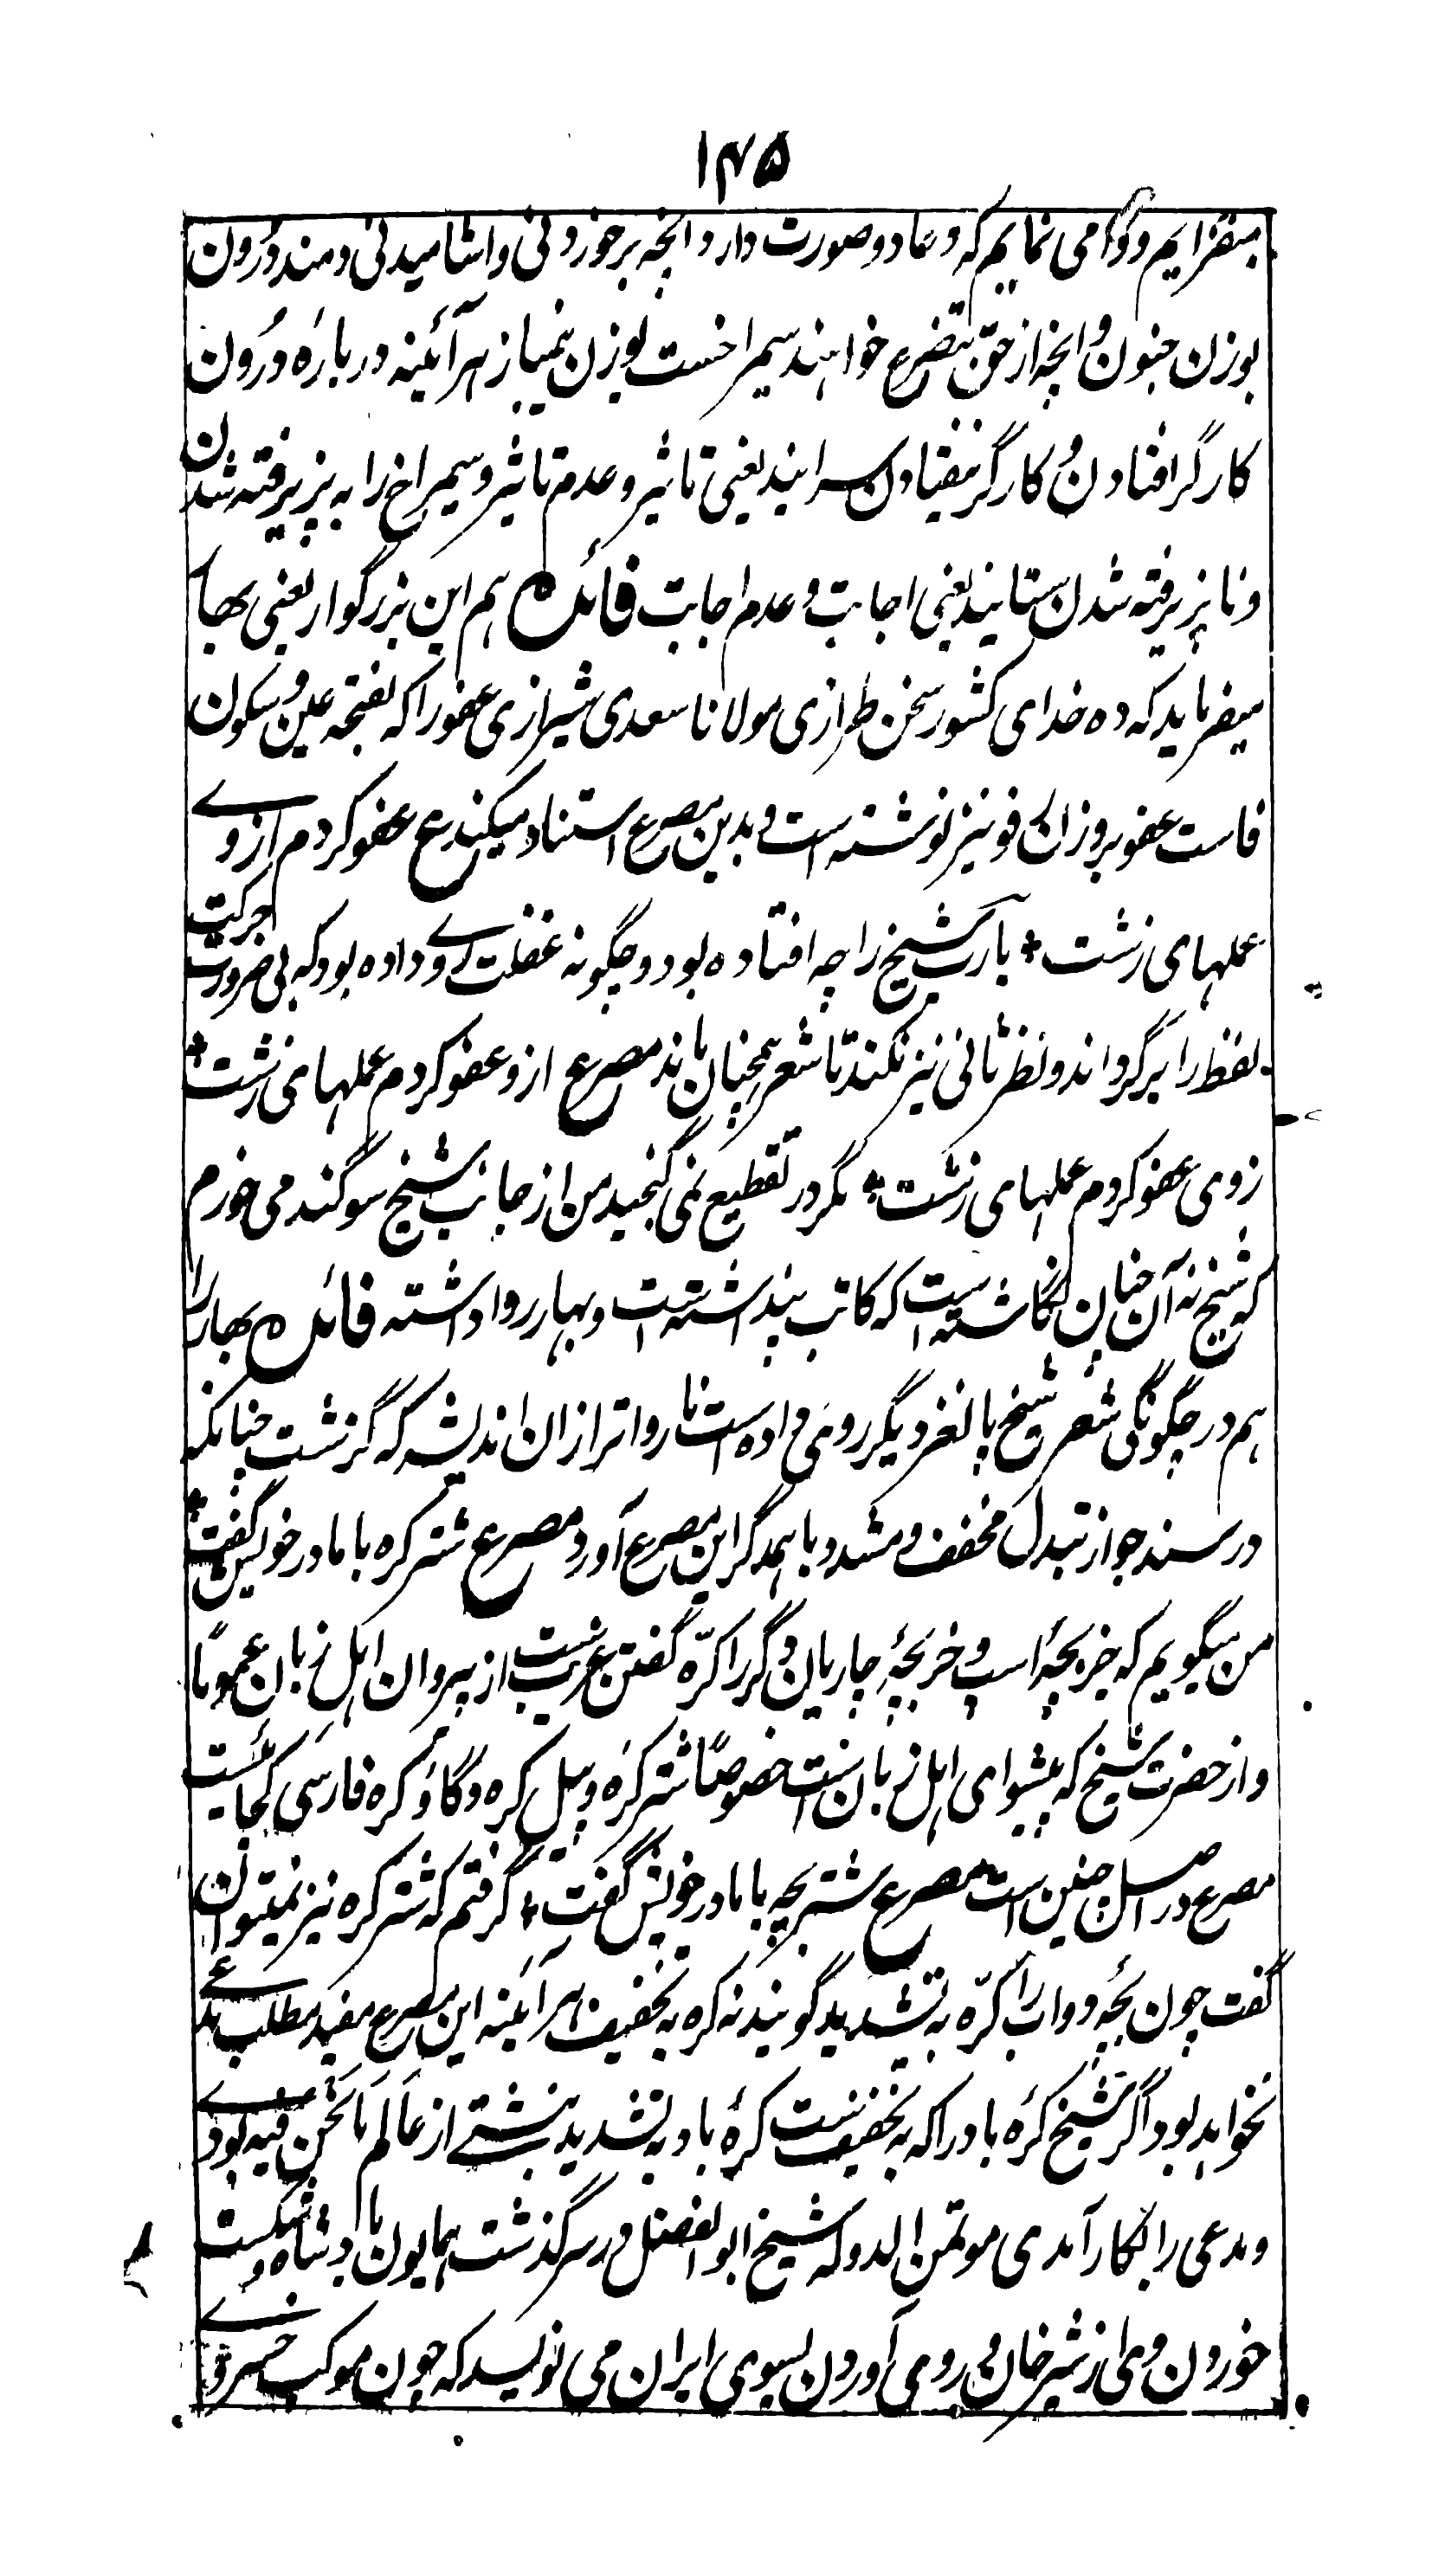 ۱۴۵
میفزایم و وا می نمایم که دعا دو صورت دارد انچه بر خوردنی و اشامیدنی دمند درون
بوزن جنون و انچه از حق بتضرع خواهند سیمراخست بوزن نمیاز هر آئینه درباره درون
کارگر افتادن و کارگر نیفتادن سرایند یعنی تاثیر و عدم تاثیر و سیمراخ را به پزیرفته شدن
و ناپزیرفته شدن ستایند یعنی اجابت و عدم اجابت فائده هم این بزرگوار یعنی بهار
میفرماید که ده خدای کشور سخن طرازی مولانا سعدی شیرازی عفو را که بفتحه عین و سکون
فاست عفو بروزن فو نیز نوشته است و بدین مصرع استناد میکند ع عفو کردم از وے
عملهای زشت * یارب شیخ را چه افتاده بود و چگونه غفلت روے داده بود که بی ضرورت حرکت
لفظ را برگرداند و نظر ثانی نیز نکند تا شعر همچنان ماند مصرع ازو عفو کردم عملهای زشت *
زوی عفو کردم عملهای زشت * مگر در تقطیع نمی گنجید من از جانب شیخ سوگند می خورم
که شیخ نه آن چنان نگاشته است که کاتب پنداشته است و بهار روا داشته فائده بهار را
هم در چگونگی شعر شیخ پالغز دیگر روی داده است ناروا تر ازان اندیشه که گزشت چنانکه
در سند جواز تبدل مخفف و مشدد باهمدگر این مصرع آورد مصرع شتر کره با مادر خویش گفت *
من میگویم که جز بچهٔ اسپ و خر بچهٔ چارپایان دگر را کرّه گفتن غریب است از پیروان اهل زبان عموماً
و از حضرت شیخ که پیشوای اهل زبان ست خصوصاً شتر کره و پیل کره و گاو کره فارسی کجائیست
مصرع در اصل چنین است مصرع شتر بچه با مادر خویش گفت * گرفتم که شتر کره نیز نمیتوان
گفت چون بچهٔ دواب را کرّه به تشدید گویند نه کره به تخفیف هر آئینه این مصرع مفید مطلب مدعے
نخواهد بود اگر شیخ کرهٔ باد را که به تخفیف ست کرهٔ باد به تشدید نبشتے از عالم ما نحن فیه بودے
و مدعی را بکار آمدی موتمن الدوله شیخ ابوالفضل در سرگذشت همایون بادشاه و شکست
خوردن وی از شیر خان و روی آوردن بسوی ایران می نویسد که چون موکب خسروے